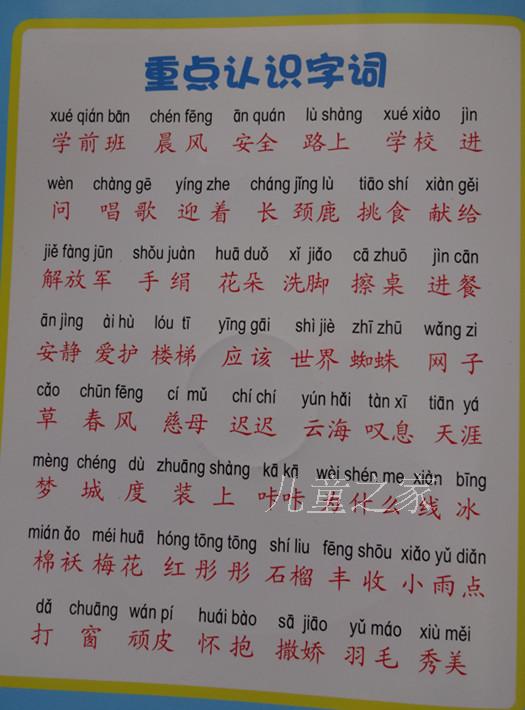 重点认识字词
xué qián bān chén fēng ān quán lù shàng xué xiào jìn
学前班 晨风 安全 路上 学校 进
wèn chàng gē yíng zhe cháng jǐng lù tiāo shí xiàn gěi
问 唱歌 迎着 长颈鹿 挑食 献给
jiě fàng jūn shǒu juàn huā duǒ xǐ jiǎo cā zhuō jìn cān
解放军 手绢 花朵 洗脚 擦桌 进餐
ān jìng ài hù lóu tī yīng gāi shì jiè zhī zhū wǎng zi
安静 爱护 楼梯 应该 世界 蜘蛛 网子
cǎo chūn fēng cí mǔ chí chí yún hǎi tàn xī tiān yá
草 春风 慈母 迟迟 云海 叹息 天涯
mèng chéng dù zhuāng shàng kā kā wèi shén me xiàn bīng
梦 城 度 装上 咔咔 为什么 线 冰
儿童之家
mián ǎo méi huā hóng tōng tōng shí liu fēng shōu xiǎo yǔ diǎn
棉袄 梅花 红彤彤 石榴 丰收 小雨点
dǎ chuāng wán pí huái bào sā jiāo yǔ máo xiù měi
打 窗 顽皮 怀抱 撒娇 羽毛 秀美